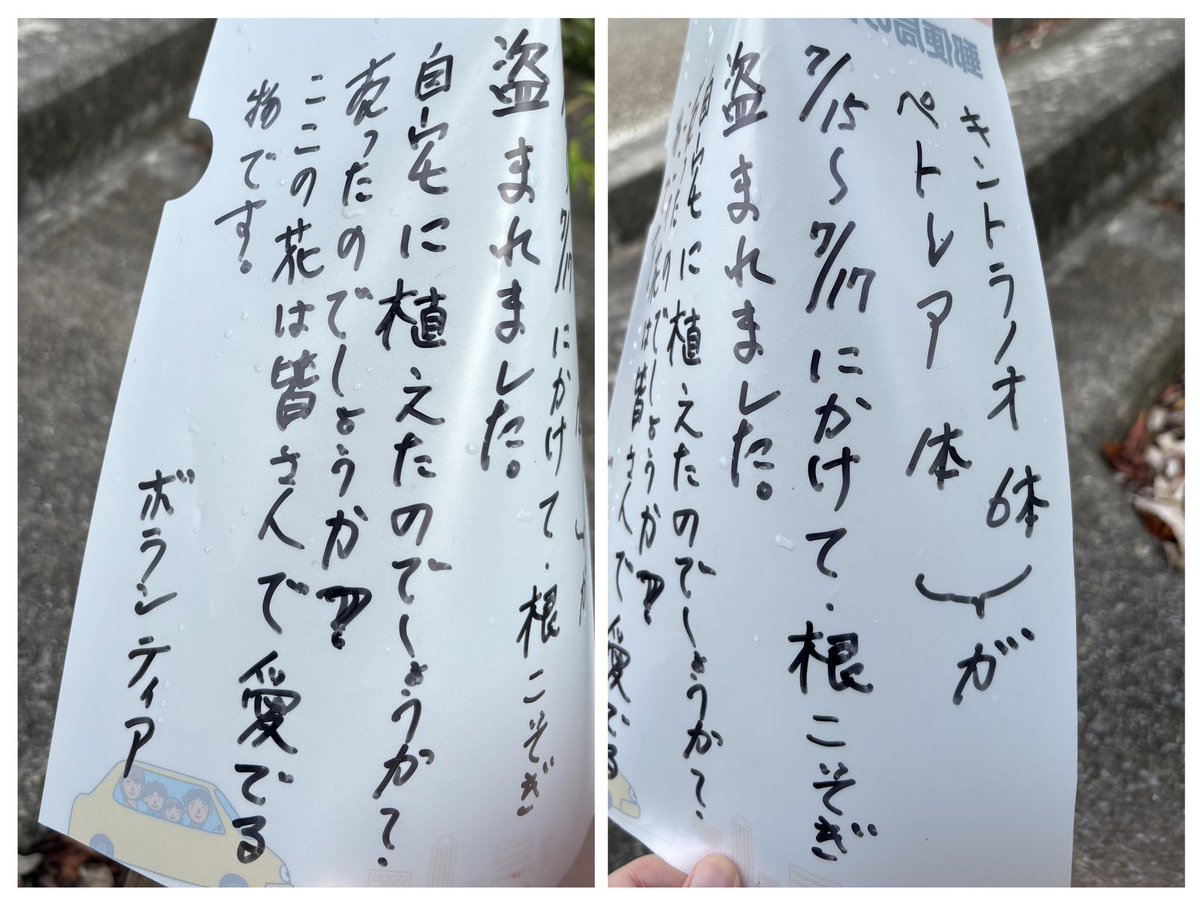 7/17にかけて.根こそぎ
盗まれました。
自宅に植えたのでしょうか?
売ったのでしょうか??
ここの花は皆さんで愛でる
物です!
ボランティア
郵便局の
キントラノオ 6体
ペトレア 体
ガ
7/15〜7/17にかけて.根こそぎ
盗まれました。
自宅に植えたのでしょうか?
たのでしょうか??
花は皆さんで愛でる